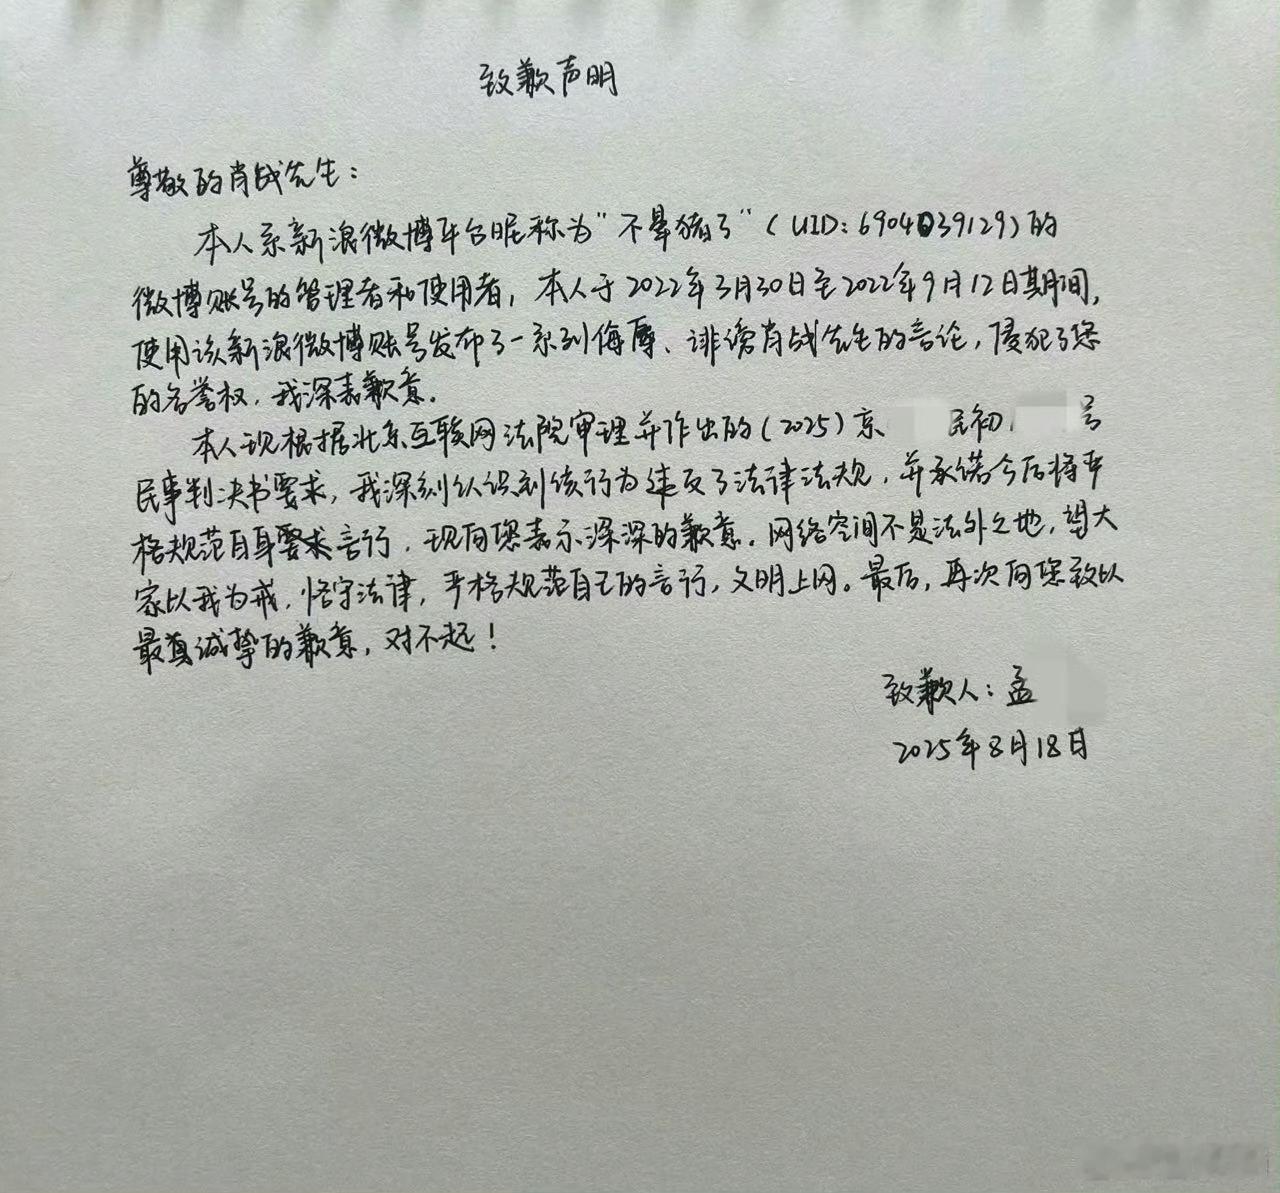 致歉声明
尊敬的肖战先生：
本人系新浪微博平台昵称为“不晕猪了”（UID：6904039129）的
微博账号的管理者和使用者，本人于2022年3月30日至2022年9月12日期间，
使用该新浪微博账号发布了一系列侮辱、诽谤肖战先生的言论，侵犯了您
的名誉权，我深表歉意。
本人现根据北京互联网法院审理并作出的（2025）京 民初 号
民事判决书要求，我深刻认识到该行为违反了法律法规，并承诺今后将严
格规范自身要求言行，现向您表示深深的歉意。网络空间不是法外之地，望大
家以我为戒，恪守法律，严格规范自己的言行，文明上网。最后，再次向您致以
最真诚挚的歉意，对不起！
致歉人：孟
2025年8月18日